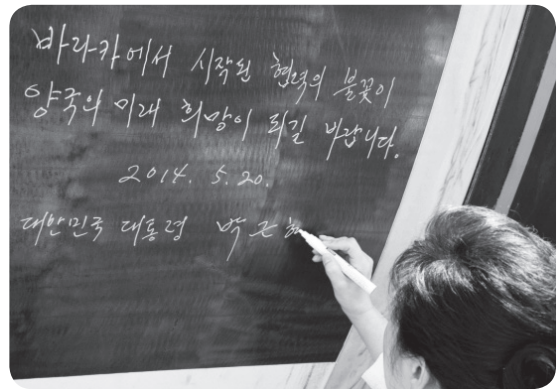 바라카에서 시작된 협력의 불꽃이
양국의 미래 희망이 되길 바랍니다.
2014. 5. 20.
대한민국 대통령 박근혜